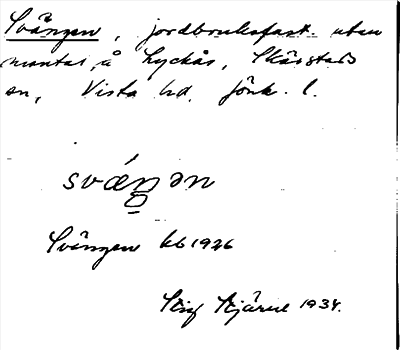 Svängen, jordbruksfast. utan
mantal, å Lyckås, Skärstads
sn, Vista hd, Jönk. l.
sváŋ̳ən
Svängen kb 1926
Stig Stjärne 1934.